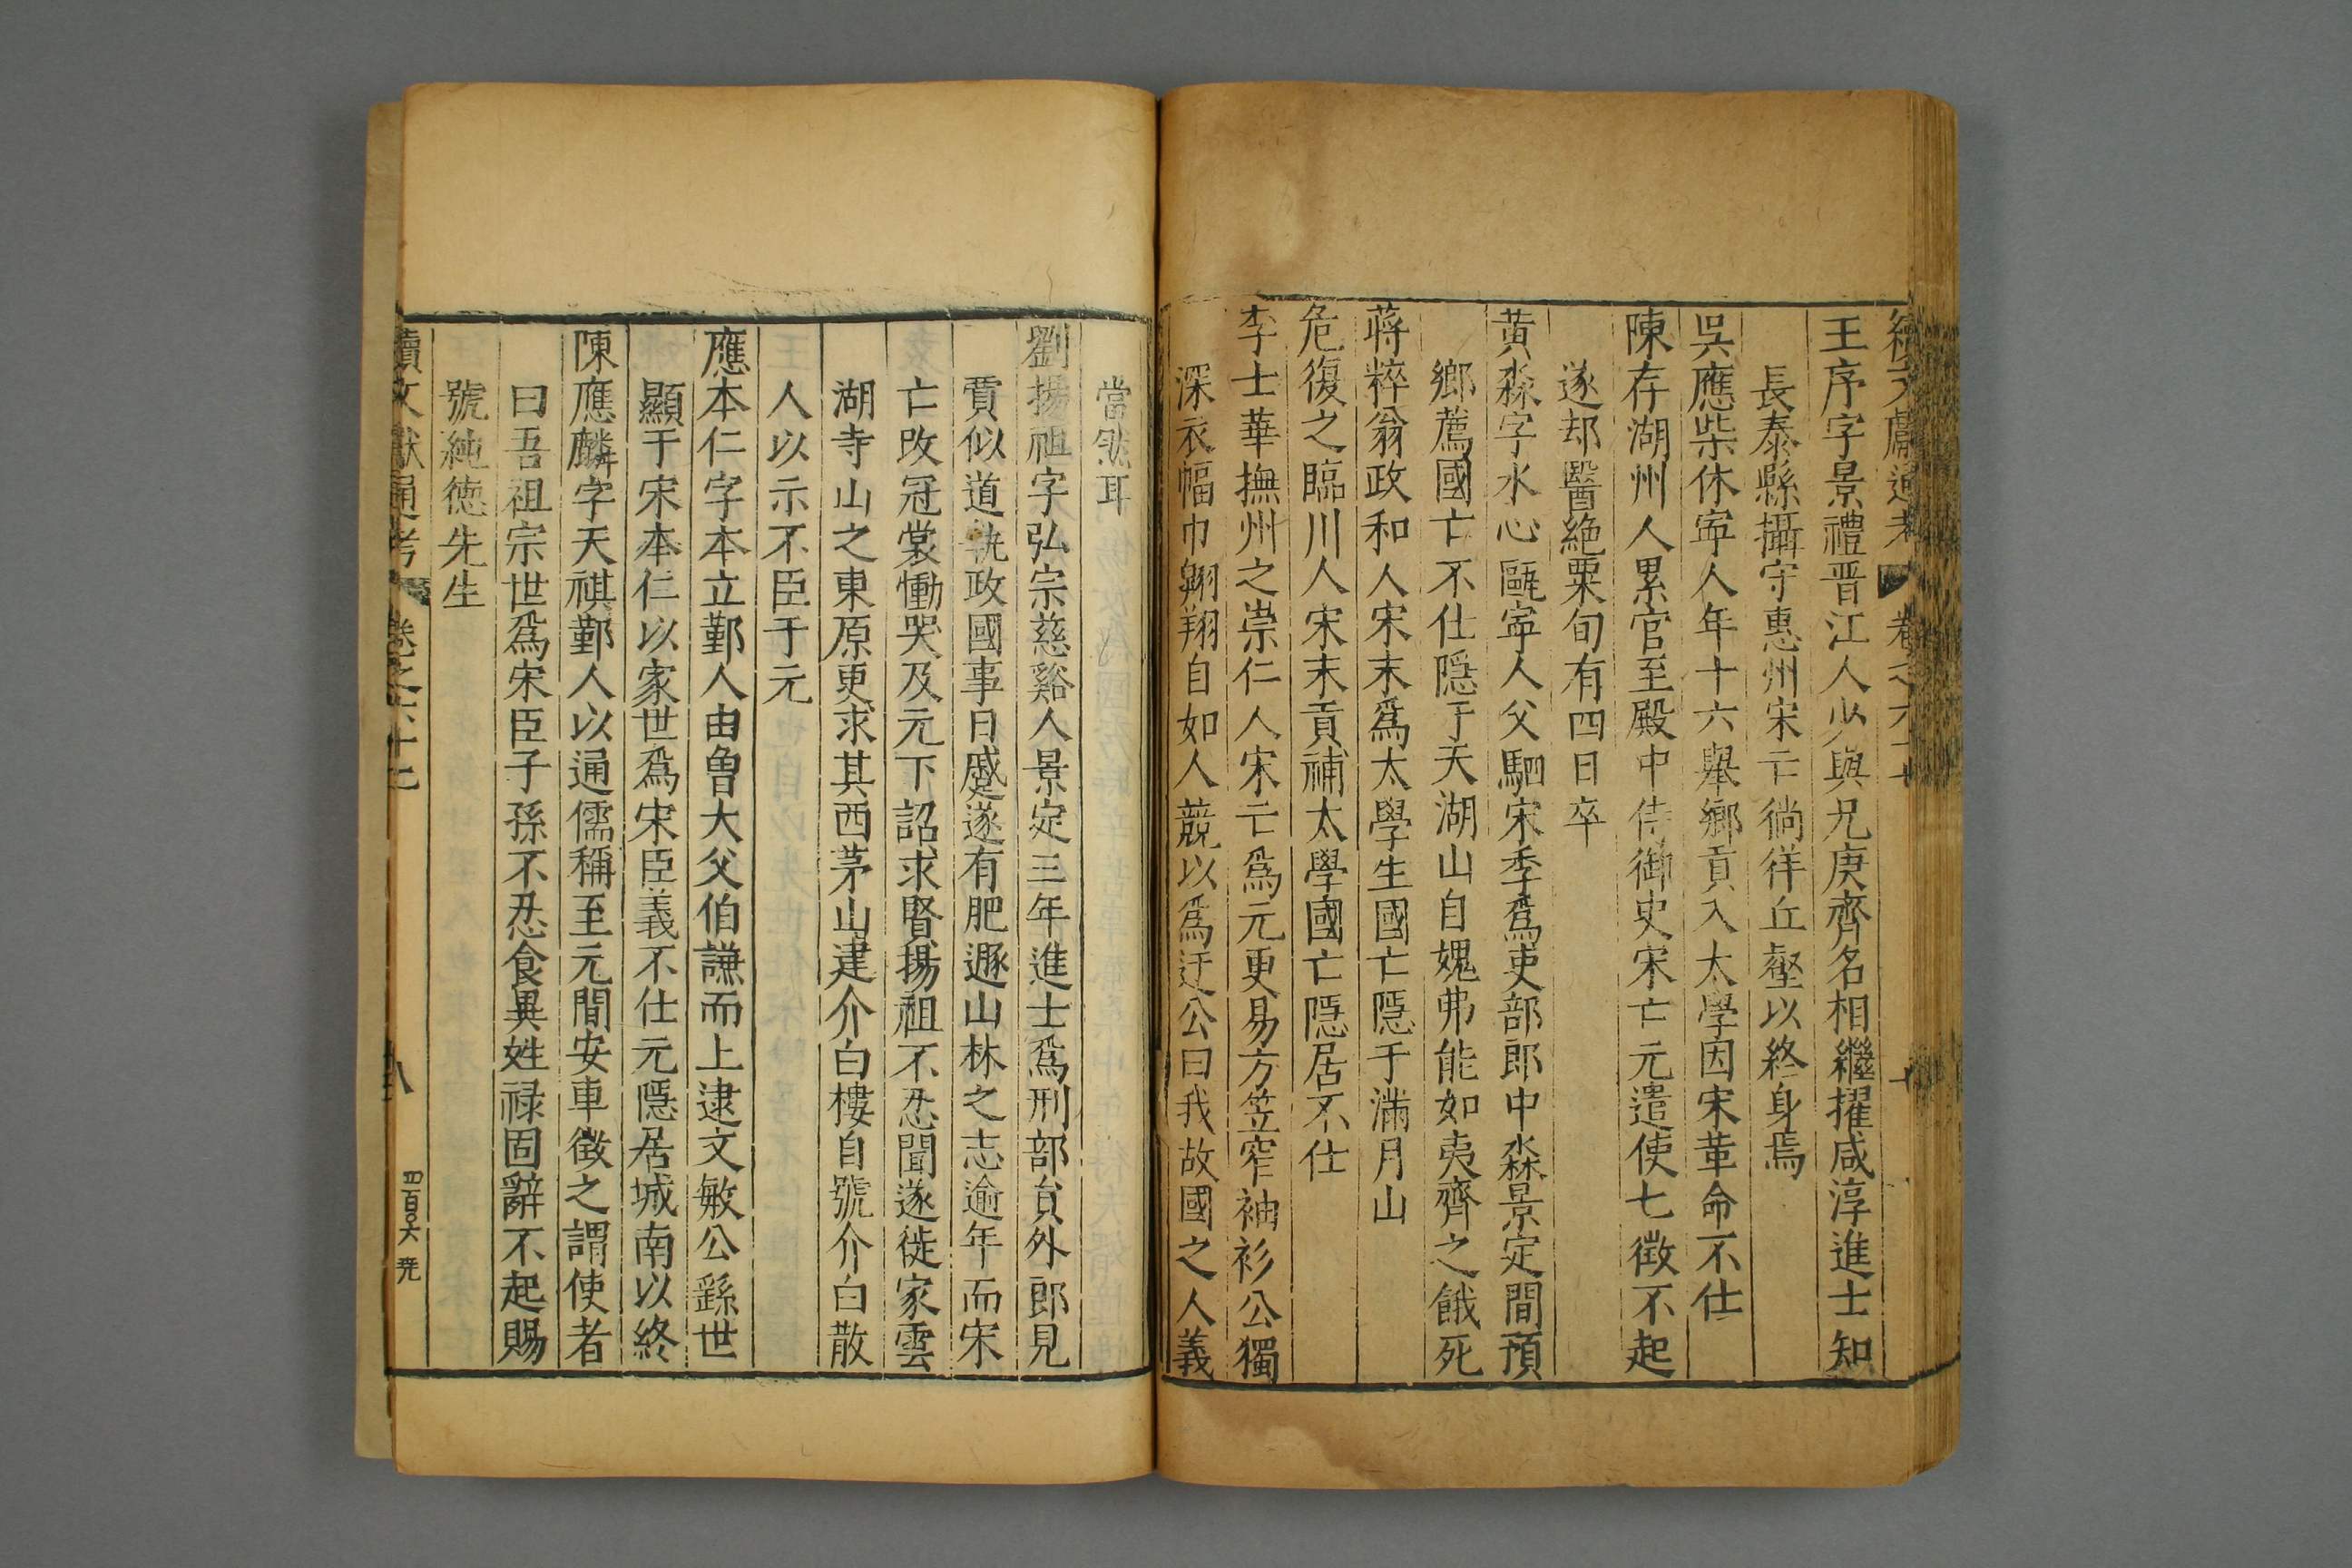 續文獻通考 卷之六十
王序字景禮晋江人少與兄庚齊名相繼擢咸淳進士知
長泰縣攝守惠州宋亡徜徉丘壑以終身焉
吳應柴休寜人年十六舉鄉貢入太學因宋革命不仕
陳存湖州人累官至殿中侍御史宋亡元遣使七徵不起
遂却醫絶粟旬有四日卒
黄淼字水心甌寜人父駟宋季爲吏部郎中淼景定間預
鄉薦國亡不仕隱于天湖山自媿弗能如夷齊之餓死
蔣粹翁政和人宋末爲太學生國亡隱于滿月山
危復之臨川人宋末貢補太學國亡隱居不仕
李士華撫州之崇仁人宋亡爲元更易方笠窄袖衫公獨
深衣幅巾翱翔自如人競以爲迂公曰我故國之人義
當然耳
劉揚祖字弘宗慈谿人景定三年進士爲刑部貟外郎見
賈似道執政國事日蹙遂有肥遯山林之志逾年而宋
亡改冠裳慟哭及元下詔求賢揚祖不忍聞遂徙家雲
湖寺山之東原更求其西茅山建介白樓自號介白散
人以示不臣于元
應本仁字本立鄞人由魯大父伯謙而上逮文敏公繇世
顯于宋本仁以家世爲宋臣義不仕元隱居城南以終
陳應麟字天祺鄞人以通儒稱至元間安車徵之謂使者
曰吾祖宗世爲宋臣子孫不忍食異姓禄固辭不起賜
號純德先生
續文獻通考 卷之六十七 八 四百〇六 尭